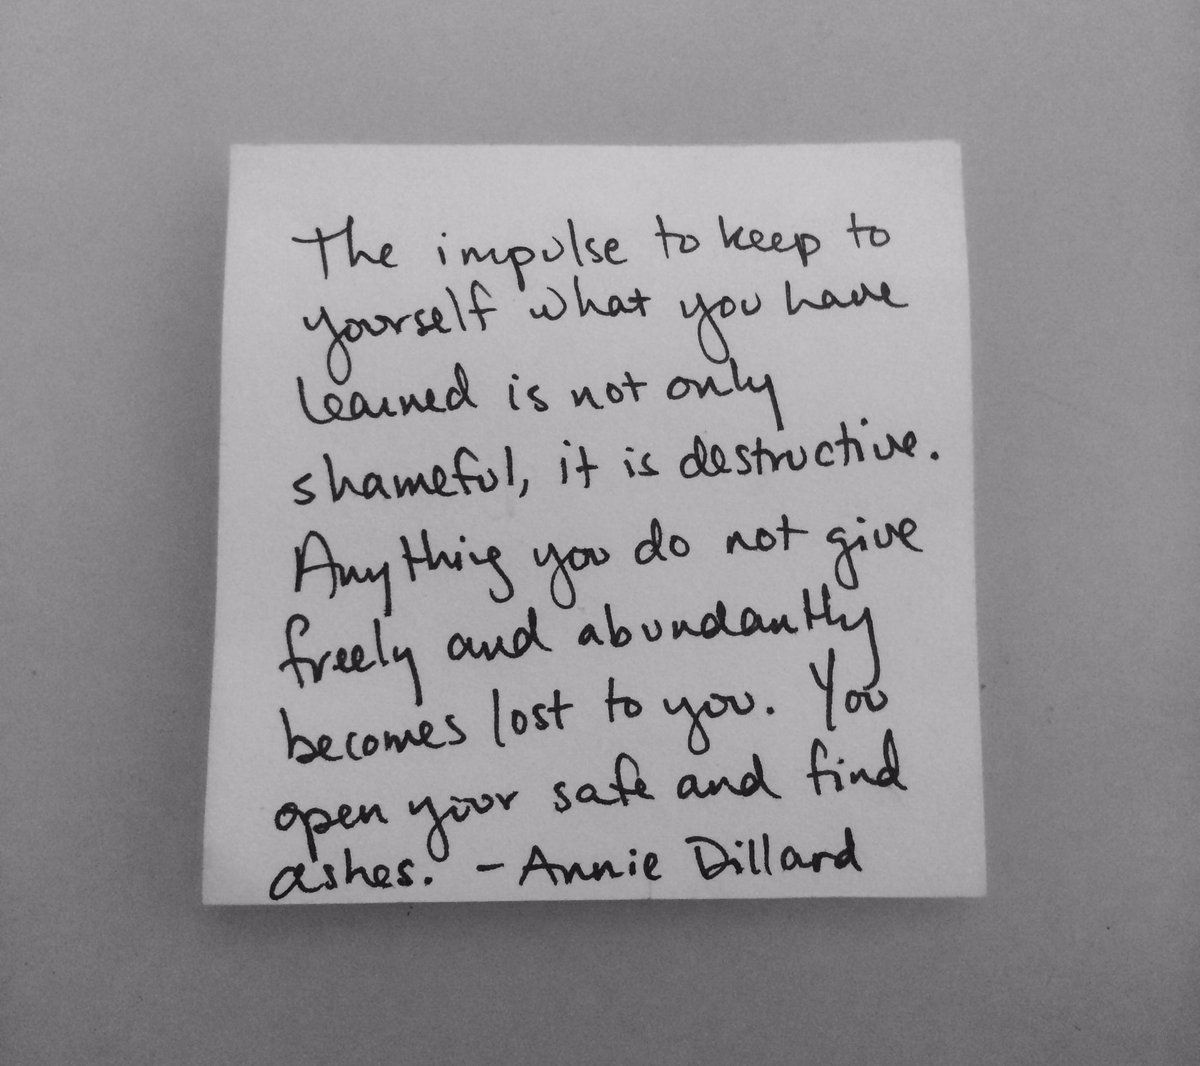 The impulse to keep to
yourself what you have
learned is not only
shameful, it is destructive.
Anything you do not give
freely and abundantly
becomes lost to you. You
open your safe and find
ashes. - Annie Dillard